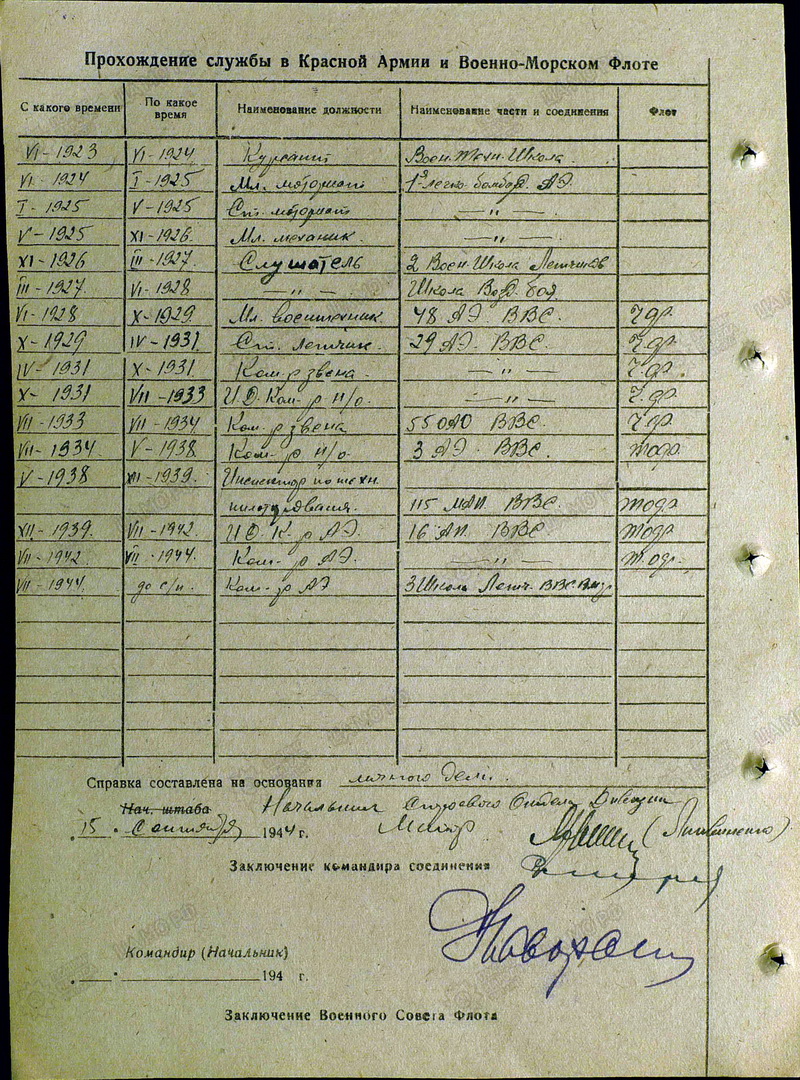 Прохождение службы в Красной Армии и Военно-Морском Флоте
С какого времени По какое время Наименование должности Наименование части и соединения Флот
VI-1923 VI-1924 Курсант Воен. Техн. Школа.
VI-1924 I-1925 Мл. моторист 1ая легко бомбард. АЭ.
I-1925 V-1925 Ст. моторист —„—
V-1925 XI-1926. Мл. механик. —„—
XI-1926 III-1927. Слушатель 2 Воен. Школа Летчиков
III-1927. VI-1928 —„— Школа Возд. боя
VI-1928 X-1929. Мл. воентехник. 48 АЭ ВВС.
X-1929 IV-1931. Ст. летчик. 29 АЭ. ВВС.
IV-1931 X-1931. Ком-р звена —„—
X-1931 VII-1933 И.Д. Ком-р н/о —„—
VII-1933 VII-1934 Ком-р звена 55 ОАО ВВС.
VII-1934. V-1938 Ком-р н/о. 3 АЭ. ВВС.
V-1938 XII-1939. Инспектор по техн.
пилотирования. 115 МАП. ВВС.
XII-1939. VII-1942 И.Д. К-р АЭ. 16 АП. ВВС
VII-1942 VII-1944. Ком-р АЭ. —„—
VII-1944. Ком-р АЭ 3 Школа Летч. ВВС
Справка составлена на основания личного дела.
Нач. штаба Начальник Строевого Отдела Дивизии
„15„ Сентября 1944 г. Майор
Заключение командира соединения
Командир (Начальник)
„ „ 194 г.
Заключение Военного Совета Флота